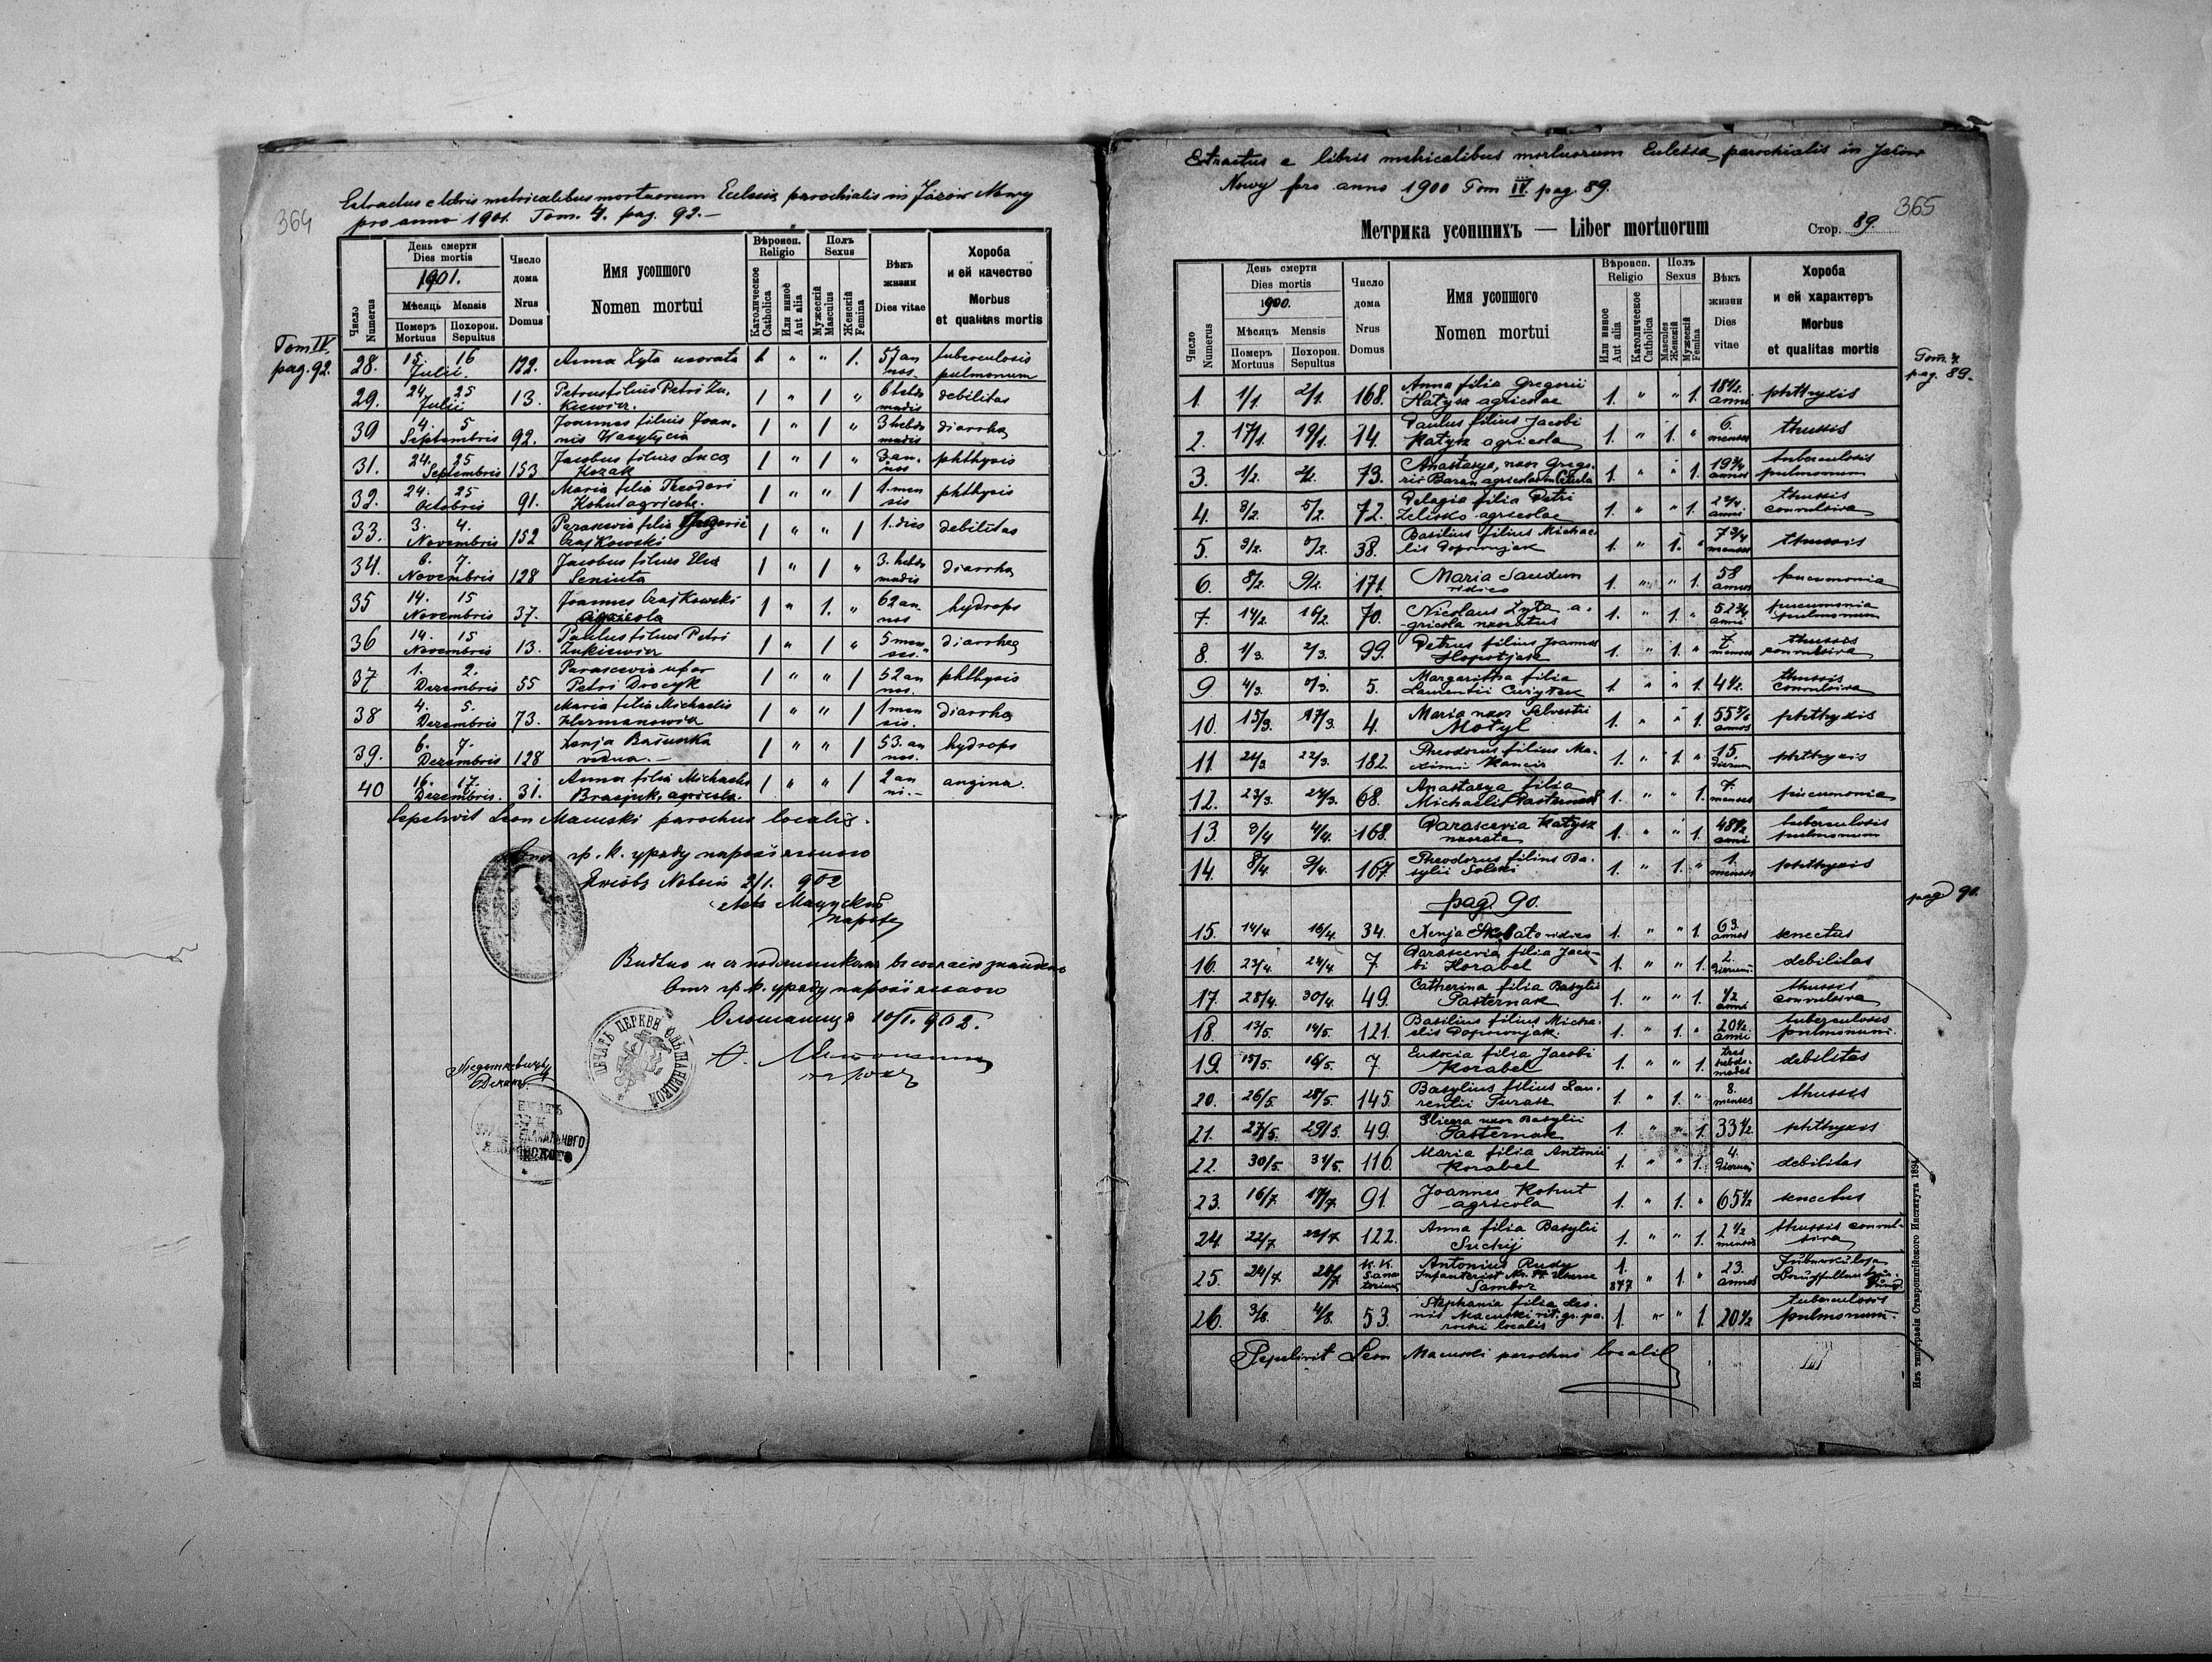 364
Extractus e libris metricalibus mortuorum Ecclesia parochialis in Jazów Nowy
pro anno 1901. Tom. 4. pag. 92.—
Tom IV.
pag. 92.
Число Numerus
День смерти
Dies mortis
1901.
Мѣсяць Mensis
Померъ Mortuus
Похорон. Sepultus
Число дома
Nrus Domus
Имя усопшого
Nomen mortui
Вѣроисп.
Religio
Католическое Catholica
Или инноё Aut alia
Полъ
Sexus
Мужескій Masculus
Женскій Femina
Вѣкъ жизни
Dies vitae
Хороба
и ей качество
Morbus
et qualitas mortis
28. 15. Julii. 16 122. Anna Zyta uxorata 1 " " 1. 57 annos. tuberculosis pulmonum
29. 24 Julii 25 13. Petrus filius Petri Zukiewicz. 1 " 1 " 6 hebdomadis debilitas
30 4. Septembris 5 92. Joannes filius Joannis Wasylycia 1 " 1 " 3 hebdomadis diarrhea
31. 24. Septembris 25 153 Jacobus filius Luca Kozak 1 " 1 " 3. annos phthysis
32. 24. Octobris 25 91. Maria filia Theodori Kohut agricole. 1 " " 1 1. mensis phthysis
33. 3. Novembris 4. 152 Parascevia filia Gregorii Czajkowski 1 " " 1 1. dies debilitas
34. 6. Novembris 7. 128 Jacobus filius Elia Seniuta 1 " 1 " 3. hebdomadis diarrhea
35 14. Novembris 15 37. Joannes Czajkowski agricola 1 " 1. " 62 annos hydrops
36 14. Novembris 15 13. Paulus filius Petri Zukiewicz 1 " 1 " 5 menses." diarrhea
37 1. Dezembris 2. 55 Parascevia uxor Petri Drocyk 1 " " 1 52 annos. phthysis
38 4. Dezembris 5. 73. Maria filia Michaelis Hermanowicz 1 " " 1 1 mensis. diarrhea
39. 6. Dezembris 7. 128 Xenja vidua.— 1 " " 1 53. annos. hydrops
40 16. Dezembris. 17. 31. Anna filia Michaelis agricola. 1 " " 1 2 anni.— angina.
Sepelivit Leon Macurski parochus localis.
гр. к. уряду парохіяльного
2/1. 902
парох
гр. к. уряду парохіяльного
10/I. 902.
ПЕЧАТЬ ЦЕРКВИ ОЛЬШАНИЦКОИ
365
Extractus e libris metricalibus mortuorum Eclesia parochialis in Jazów
Nowy pro anno 1900 Tom IV. pag. 89.
Метрика усопшихъ — Liber mortuorum
Стор. 89.
Число Numerus
День смерти
Dies mortis
1900.
Мѣсяць Mensis
Померъ Mortuus
Похорон. Sepultus
Число дома
Nrus Domus
Имя усопшого
Nomen mortui
Вѣроисп.
Religio
Или инное Aut alia
Католическое Catholica
Полъ
Sexus
Masculus Женскій
Мужескій Femina
Вѣкъ жизни
Dies vitae
Хороба
и ей характеръ
Morbus
et qualitas mortis
Tom. 4.
pag. 89.
1. 1/1. 2/1. 168. Anna filia Gregorii Katysz agricolae 1. " " 1. 18 1/2 anni phthyxis
2. 17/1. 19/1. 14. Paulus filius Jacobi Katysz agricola 1. " 1. " 6. menses thussis
3. 1/2. 2/2. 73. Anastasya, uxor Gregorii Baran agricola 1. " " 1. 19 3/4 annos tuberculosis pulmonum
4. 3/2. 5/2. 72. Pelagia filia Petri Zelisko agricolae 1. " " 1. 2 2/4 anni thussis convulsiva
5. 38. Basilius filius Michaelis 1. " 1. " 7 3/4 menses thussis
6. 8/2. 9/2. 171. Maria 1. " " 1. 58 annos pneumonia
7. 14/2. 16/2. 70. Nicolaus Zyta agricola uxoratus 1. " 1. " 52 3/4 anni pneumonia pulmonum
8. 1/3. 2/3. 99. Petrus filius Joannes 1. " 1. " 7. menses thussis convulsiva
9 4/3. 5. Margaritha filia Laurentii 1. " " 1. 4 1/2. thussis convulsiva
10. 15/3. 17/3. 4. Maria uxor Selvestri Motyl 1. " " 1. annos phthyxis
11. 182. Theodorus filius Maximi 1. " 1. " 15. dierum phthysis
12. 23/3. 24/3. 68. Anastasya filia Michaelis Pasternak 1. " " 1. 7. menses pneumonia
13. 3/4 4/4. 168. Parascevia Katysz uxorata 1. " " 1. 48 1/2 anni tuberculosis pulmonum
14. 8/4. 9/4. 167. Theodorus filius Basylii Solski 1. " 1. " 1. mensis phthyxis
pag. 90.
pag 90.
15. 14/4 16/4. 34. Xenja 1. " " 1. 63. annos senectus
16. 23/4. 24/4 7. Parascevia filia Jacobi Korabel 1. " " 1. 2. dierum debilitas
17. 28/4. 30/4. 49. Catherina filia Basylii Pasternak 1. " " 1. 1/2 anni thussis convulsiva
18. 13/5. 14/5. 121. Basilius filius Michaelis 1. " 1. " 20 1/2 anni tuberculosis pulmonum.
19. 15/5. 16/5. 7. Eudocia filia Jacobi Korabel 1. " " 1. tres hebdomades debilitas
20. 26/5. 28/5. 145. Basylius filius Laurentii Turasz 1. " 1. " 8. menses thussis
21. 27/5. 29/5. 49. Glicera uxor Basylii Pasternak 1. " " 1. 33 1/2. phthyxis
22. 30/5. 31/5. 116. Maria filia Antonii Korabel 1. " " 1. 4. dierum debilitas
23. 16/7. 17/7. 91. Joannes Kohut agricola 1. " 1. " 65 1/2 senectus
24. 22/7 122. Anna filia Basylii Suchij 1. " " 1. 2 1/2 menses thussis convulsiva
25. 24/7 K. K. Sanatorium Antonius Rudy Infanterist Nr. 77 Sambor 1. 877 " 1. " 23. annos
26. 3/8. 4/8. 53. Stephania filia Leonis Macurski rit. gr. parochi localis 1. " " 1. 20 1/2 tuberculosis pulmonum.
Sepelivit Leon Macurski parochus localis
Изъ типографіи Ставропигійского Института 1894.